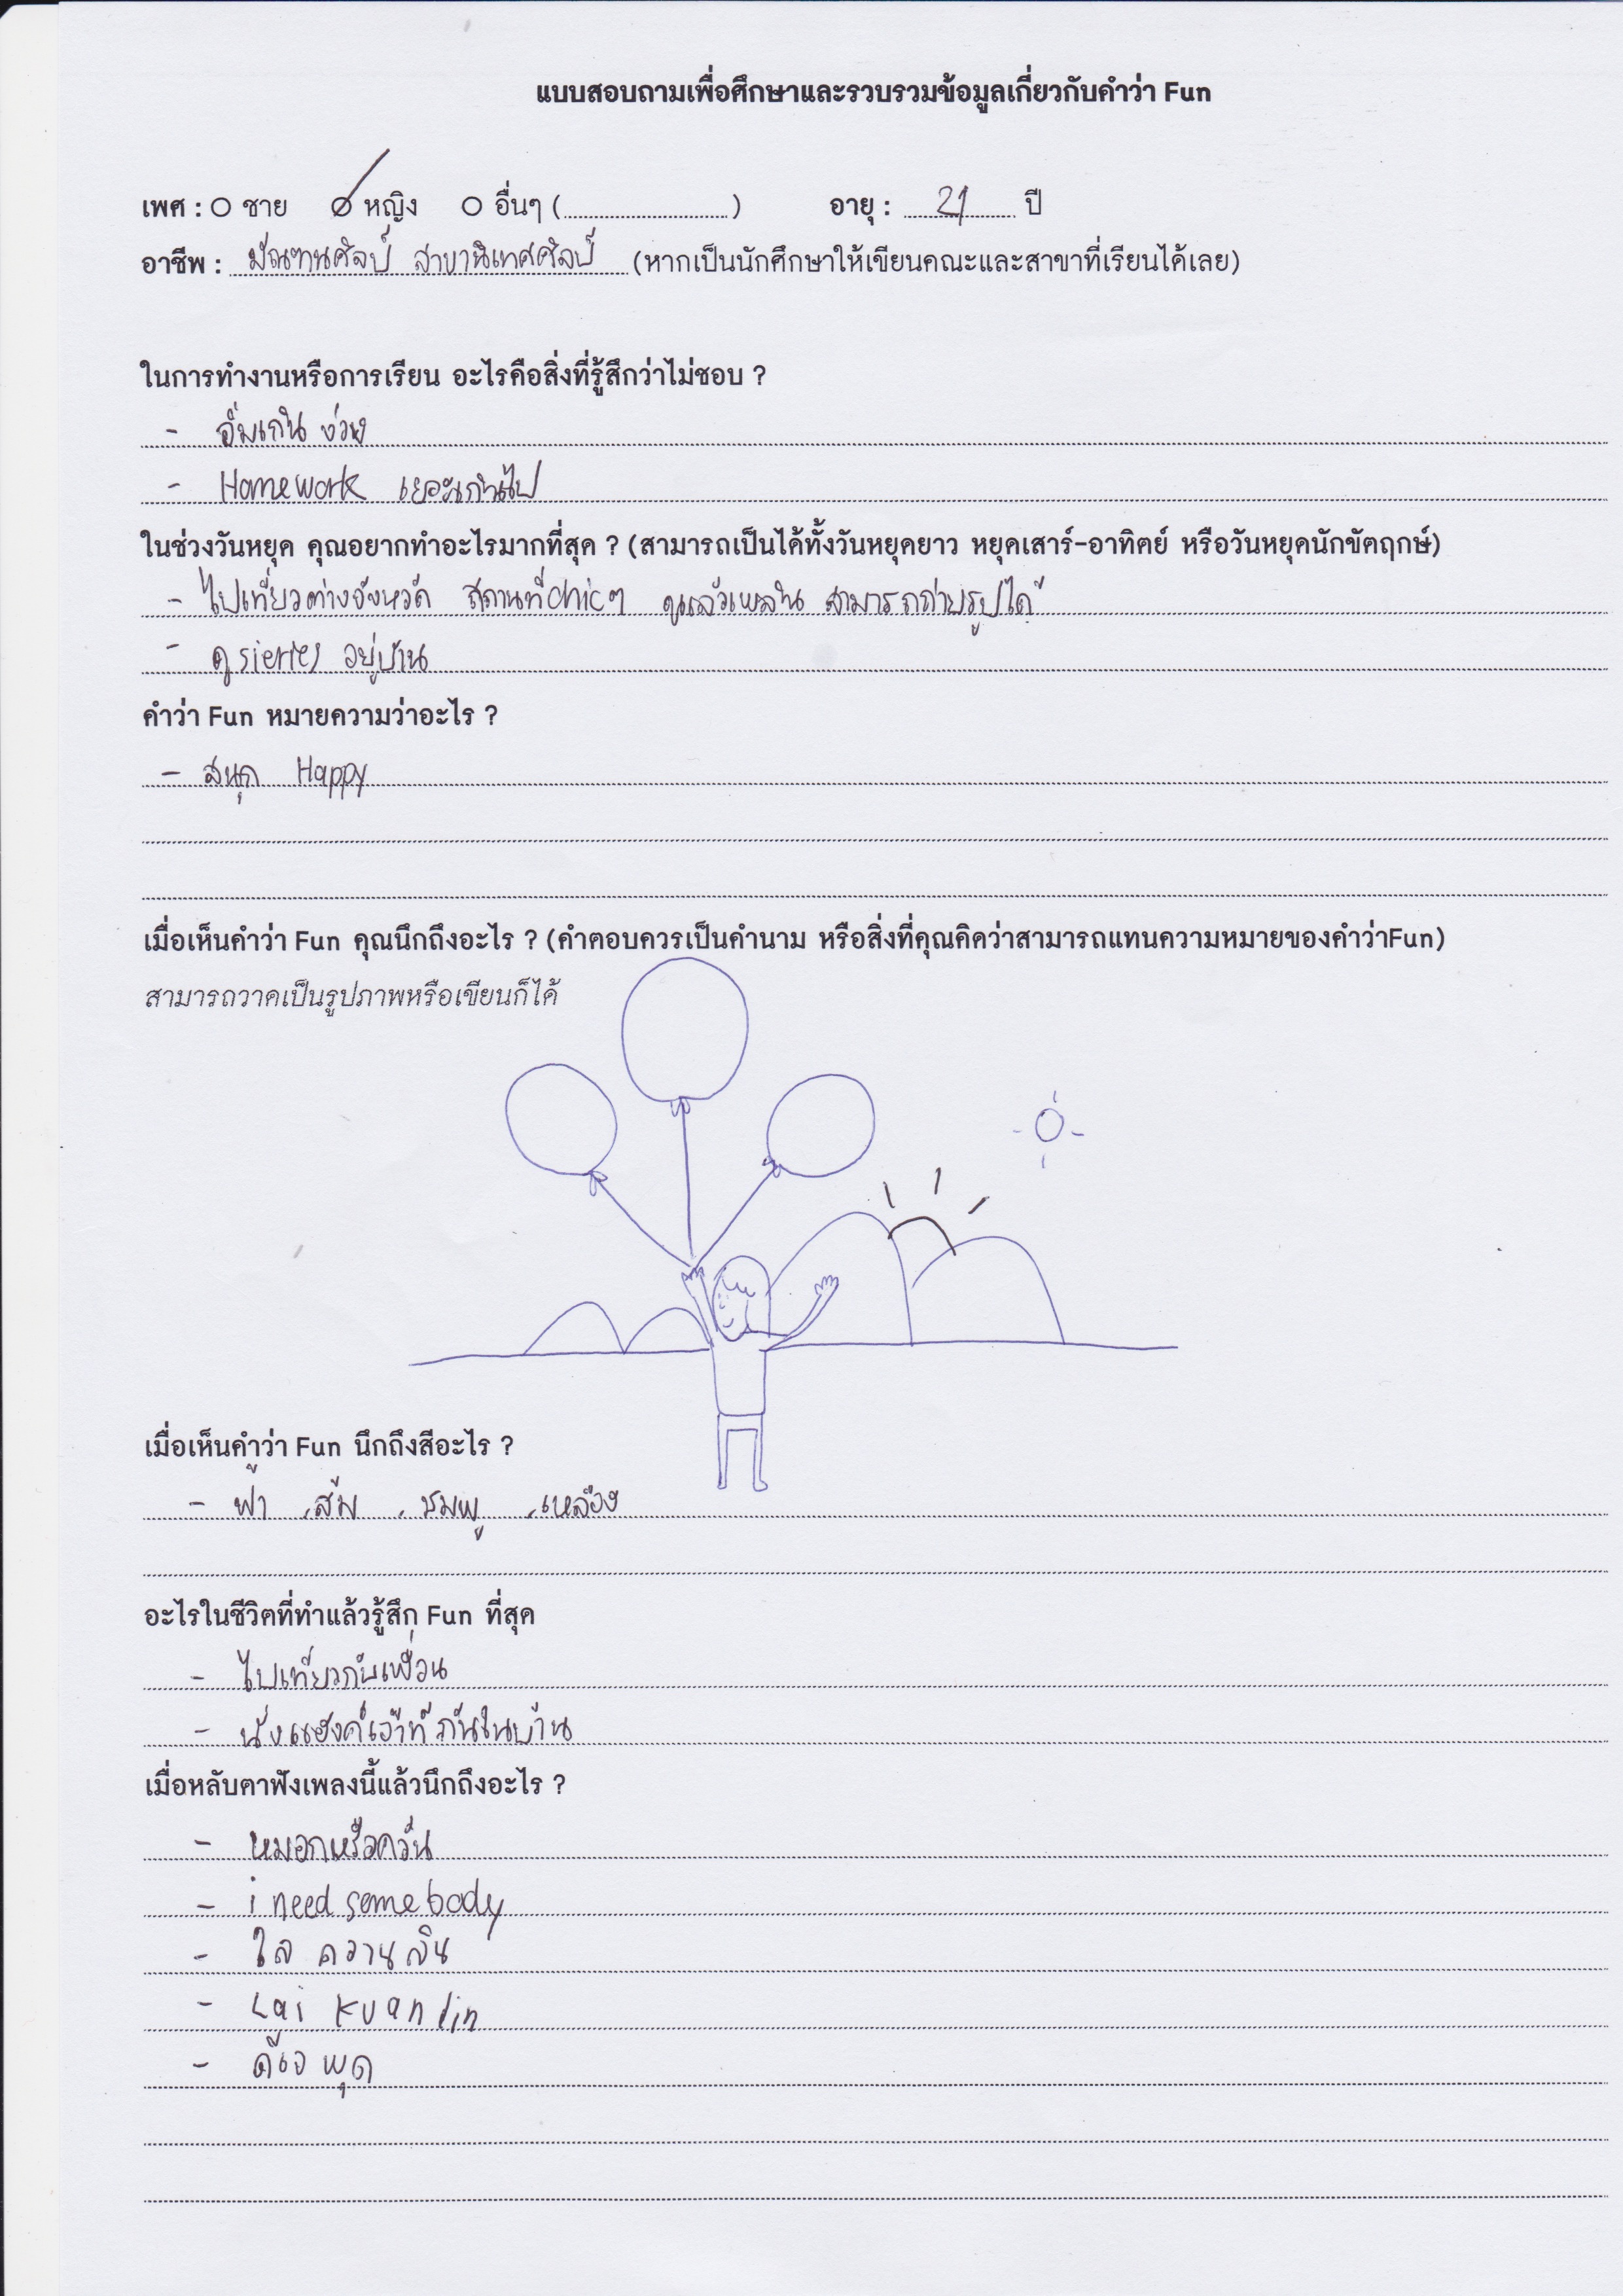 แบบสอบถามเพื่อศึกษาและรวบรวมข้อมูลเกี่ยวกับคำว่า Fun
เพศ : ชาย หญิง อื่นๆ (........................) อายุ : 21 ปี
อาชีพ : มัณฑนศิลป์ สาขานิเทศศิลป์ (หากเป็นนักศึกษาให้เขียนคณะและสาขาที่เรียนได้เลย)
ในการทำงานหรือการเรียน อะไรคือสิ่งที่รู้สึกว่าไม่ชอบ ?
- อิ่มเกิน ง่วง
- Homework เยอะเกินไป
ในช่วงวันหยุด คุณอยากทำอะไรมากที่สุด ? (สามารถเป็นได้ทั้งวันหยุดยาว หยุดเสาร์-อาทิตย์ หรือวันหยุดนักขัตฤกษ์)
- ไปเที่ยวต่างจังหวัด สถานที่ chic ๆ ดูแล้วเพลิน สามารถถ่ายรูปได้
- ดู sieries อยู่บ้าน
คำว่า Fun หมายความว่าอะไร ?
- สนุก Happy
เมื่อเห็นคำว่า Fun คุณนึกถึงอะไร ? (คำตอบควรเป็นคำนาม หรือสิ่งที่คุณคิดว่าสามารถแทนความหมายของคำว่าFun)
สามารถวาดเป็นรูปภาพหรือเขียนก็ได้
เมื่อเห็นคำว่า Fun นึกถึงสีอะไร ?
- ฟ้า , ส้ม , ชมพู , เหลือง
อะไรในชีวิตที่ทำแล้วรู้สึก Fun ที่สุด
- ไปเที่ยวกับเพื่อน
- นั่งแฮงค์เอ้าท์กันในบ้าน
เมื่อหลับตาฟังเพลงนี้แล้วนึกถึงอะไร ?
- หมอกหรือควัน
- i need somebody
- ไล ควานลิน
- Lai Kuan lin
- ดีเจ พุด